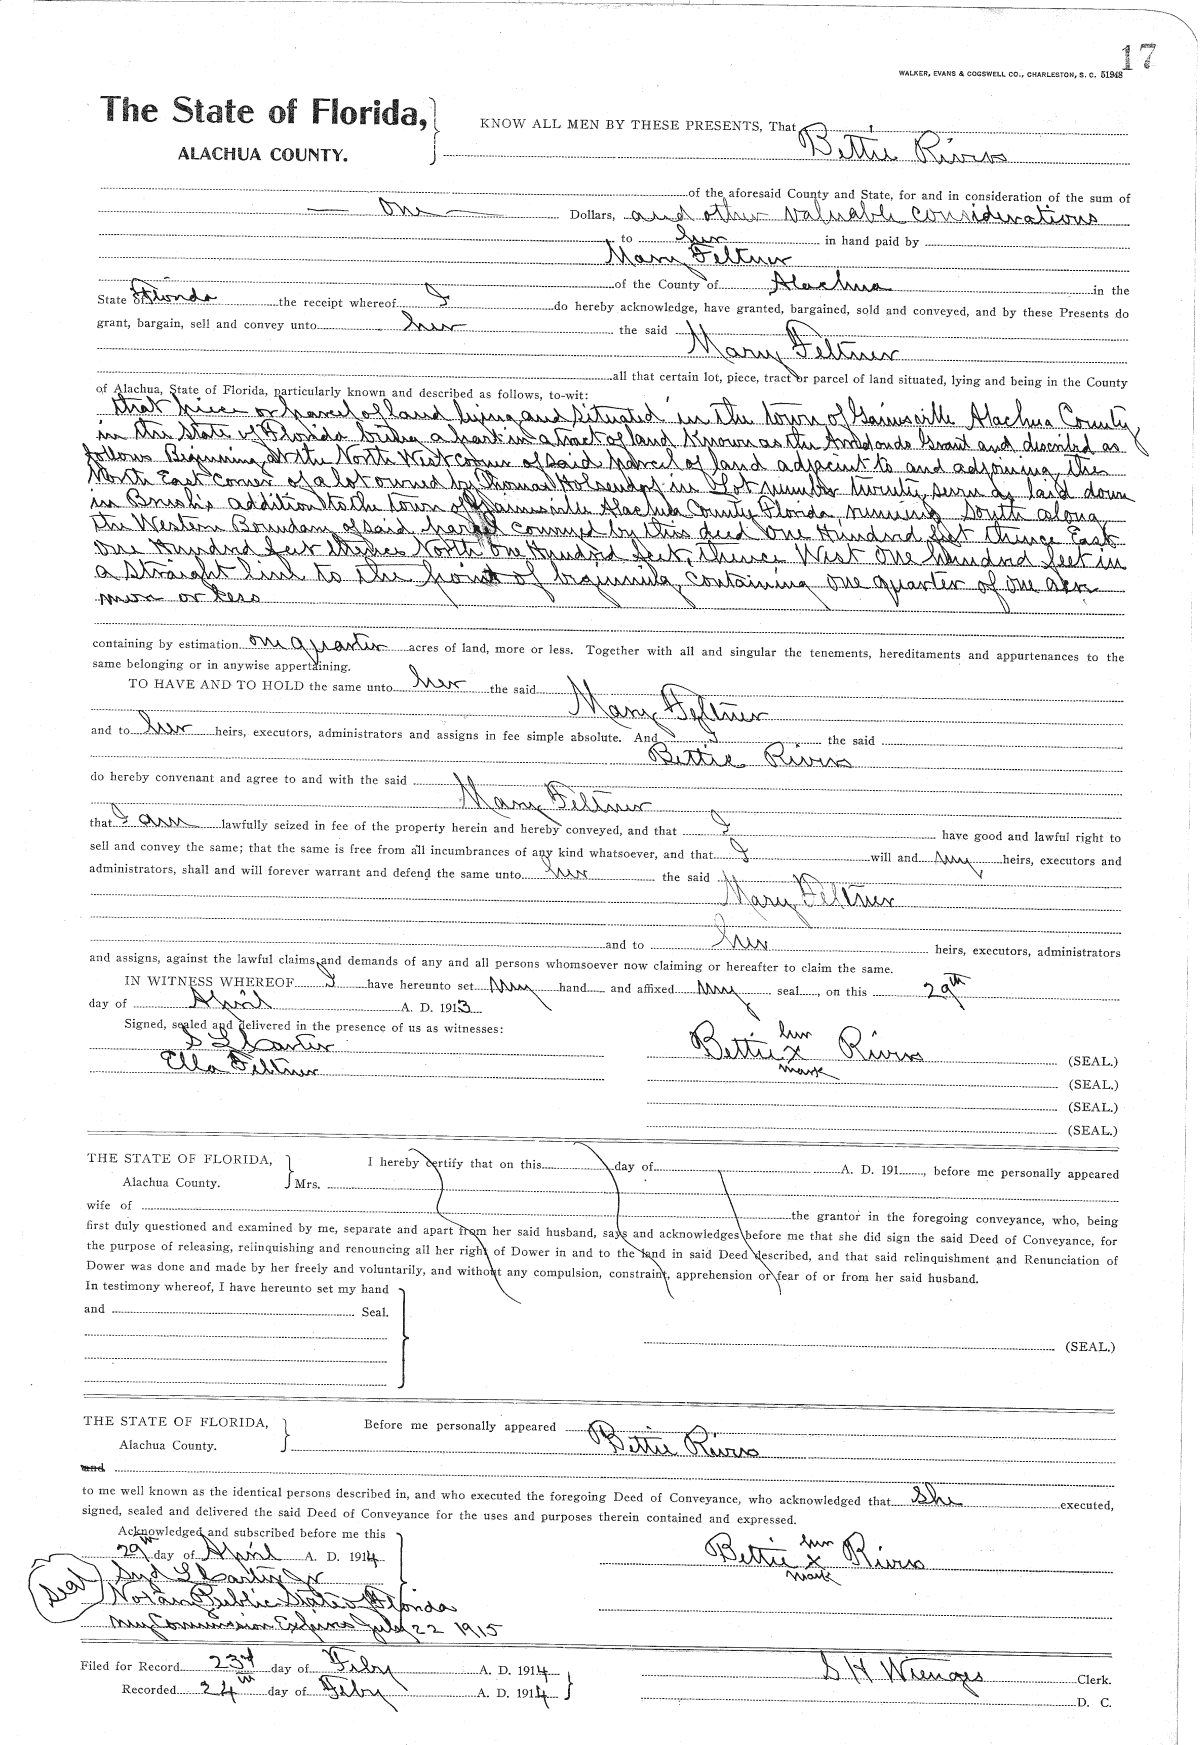 17
WALKER, EVANS & COGSWELL CO., CHARLESTON, S. C. 51948
The State of Florida,
ALACHUA COUNTY.
KNOW ALL MEN BY THESE PRESENTS, That
Bettie Rivers
of the aforesaid County and State, for and in consideration of the sum of
— One — Dollars, and other valuable considerations
to her in hand paid by
Mary Feltner
of the County of Alachua in the
State of Florida the receipt whereof I do hereby acknowledge, have granted, bargained, sold and conveyed, and by these Presents do
grant, bargain, sell and convey unto her the said
Mary Feltner
all that certain lot, piece, tract or parcel of land situated, lying and being in the County
of Alachua, State of Florida, particularly known and described as follows, to-wit:
that piece or parcel of land lying and situated in the town of Gainesville Alachua County
in the State of Florida being a part in a tract of land known as the Arredondo Grant and described as
follows Beginning at the North West corner of said parcel of land adjacint to and adjoining the
North East corner of a lot owned by Thomas Holsendorf in Lot number twenty seven as laid down
in Brush's addition to the town of Gainesville Alachua County Florida, running South along
the Western Boundary of said parcel conveyed by this deed One Hundred feet thence East
One Hundred feet thence North One Hundred feet, thence West One hundred feet in
a straight line to the point of beginning, containing one quarter of one acre
more or less
containing by estimation one quarter acres of land, more or less. Together with all and singular the tenements, hereditaments and appurtenances to the
same belonging or in anywise appertaining.
TO HAVE AND TO HOLD the same unto her the said
Mary Feltner
and to her heirs, executors, administrators and assigns in fee simple absolute. And I the said
Bettie Rivers
do hereby convenant and agree to and with the said
Mary Feltner
that I am lawfully seized in fee of the property herein and hereby conveyed, and that I have good and lawful right to
sell and convey the same; that the same is free from all incumbrances of any kind whatsoever, and that I will and my heirs, executors and
administrators, shall and will forever warrant and defend the same unto her the said
Mary Feltner
and to her heirs, executors, administrators
and assigns, against the lawful claims and demands of any and all persons whomsoever now claiming or hereafter to claim the same.
IN WITNESS WHEREOF I have hereunto set my hand and affixed my seal, on this 29th
day of April A. D. 1913
Signed, sealed and delivered in the presence of us as witnesses:
S L Carter
Ella Feltner
her
Bettie x Rivers (SEAL.)
mark
(SEAL.)
(SEAL.)
(SEAL.)
THE STATE OF FLORIDA,
Alachua County.
I hereby certify that on this day of A. D. 191 , before me personally appeared
Mrs.
wife of the grantor in the foregoing conveyance, who, being
first duly questioned and examined by me, separate and apart from her said husband, says and acknowledges before me that she did sign the said Deed of Conveyance, for
the purpose of releasing, relinquishing and renouncing all her right of Dower in and to the land in said Deed described, and that said relinquishment and Renunciation of
Dower was done and made by her freely and voluntarily, and without any compulsion, constraint, apprehension or fear of or from her said husband.
In testimony whereof, I have hereunto set my hand
and Seal.
(SEAL.)
THE STATE OF FLORIDA,
Alachua County.
Before me personally appeared
Bettie Rivers
and
to me well known as the identical persons described in, and who executed the foregoing Deed of Conveyance, who acknowledged that She executed,
signed, sealed and delivered the said Deed of Conveyance for the uses and purposes therein contained and expressed.
Acknowledged and subscribed before me this
29th day of April A. D. 1914
Syd L Carter Jr
Seal
Notary Public State of Florida
my Commission Expires July 22 1915
her
Bettie x Rivers
mark
Filed for Record 23rd day of Feby A. D. 1914
Recorded 24th day of Feby A. D. 1914
S H Wienges Clerk.
D. C.